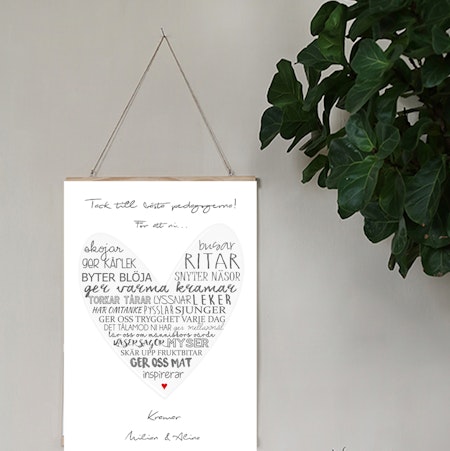 Tack till bästa pedagogerna!
För att ni...
skojar busar
ger KÄRLEK RITAR
BYTER BLÖJA SNYTER NÄSOR
ger varma kramar
TORKAR TÅRAR LYSSNAR LEKER
HAR OMTANKE PYSSLAR SJUNGER
GER OSS TRYGGHET VARJE DAG
DET TÅLAMOD NI HAR ger mellanmål
lär oss om människors värde
LÄSER SAGOR MYSER
SKÄR UPP FRUKTBITAR
GER OSS MAT
inspirerar
Kramar
Milian & Aline